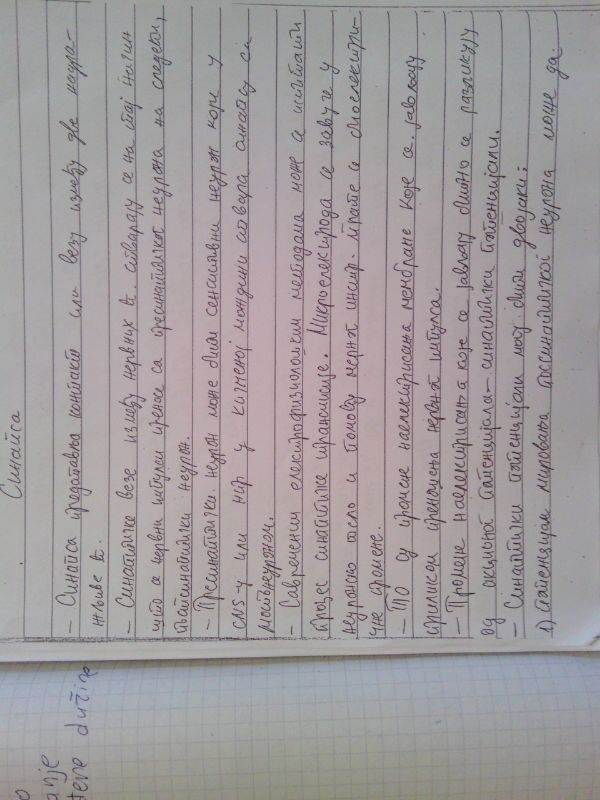 Синапса
- Синапса представља контакт или везу између две надра-
жљиве ћ.
- Синаптичке везе између нервних ћ. стварају се на тај начин
што се нервни импулси преносе са пресинаптичког неурона на следећи,
постсинаптички неурон.
- Пресинаптички неурон може бити сензитивни неурон који у
CNS-у или пир у кичменој мождини ствара синапсу са
мотонеуроном.
- Савременим електрофизиолошким методама може се испитати
процес синаптичке трансмисије. Микроелектрода се завуче у
неуронско тело и помоћу мерног инстр. прате се биоелектри-
чне промене.
- То су промене наелектрисања мембране које се јављају
приликом преношења нервног импулса.
- Промене наелектрисања које се јављају битно се разликују
од акционог потенцијала - синаптички потенцијали.
- Синаптички потенцијали могу бити двојаки:
1) Потенцијал мировања постсинаптичког неурона може да
anje
tene dužine